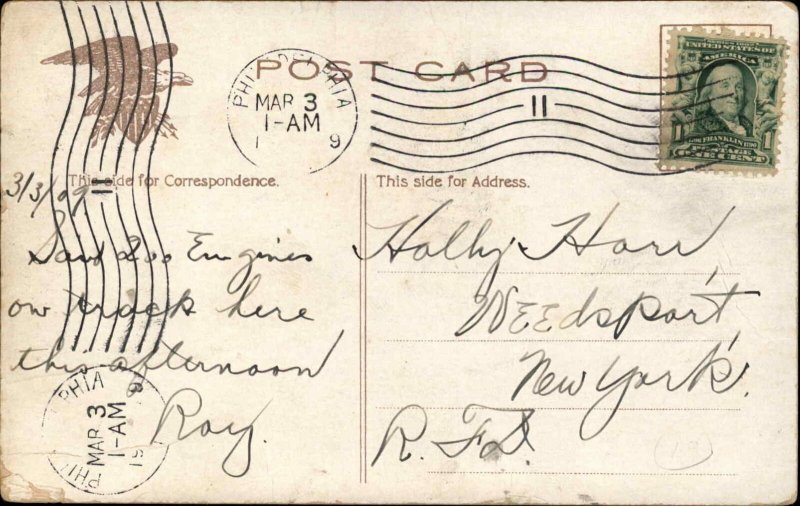 POST CARD
PHILADELPHIA
MAR 3
1-AM
1 9
11
UNITED STATES OF
AMERICA
1
FRANKLIN
POSTAGE
ONE CENT
This side for Correspondence.
This side for Address.
3/3/09
11
Saw 200 Engines
on track here
this afternoon
Roy.
Holly Horr,
WEEdsport,
New York.
R.F.D.
PHILA
MAR 3
1-AM
19